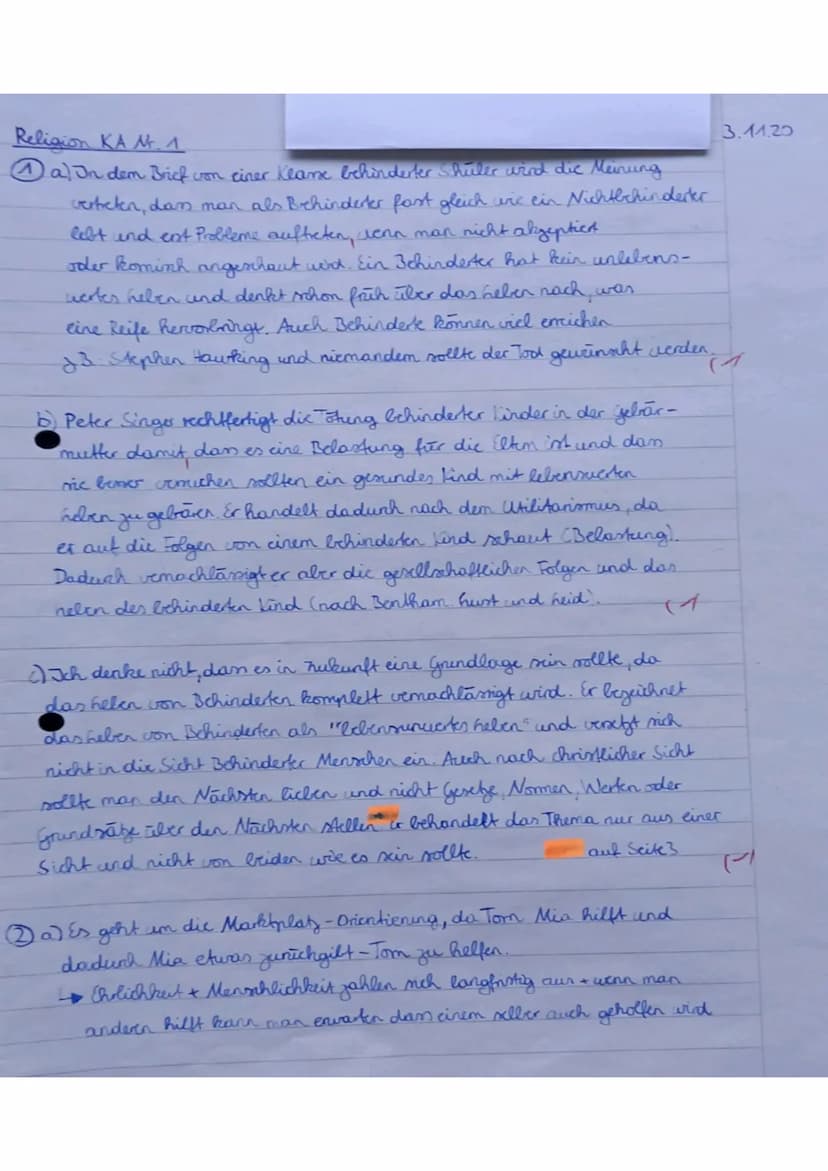 Religion KA Nr. 1
3.11.20
① a) In dem Brief von einer Klasse behinderter Schüler wird die Meinung
vertreten, dass man als Behinderter fast gleich wie ein Nichtbehinderter
lebt und erst Probleme auftreten, wenn man nicht akzeptiert
oder komisch angeschaut wird. Ein Behinderter hat kein unlebens-
wertes Leben und denkt schon früh über das Leben nach, was
eine Reife hervorbringt. Auch Behinderte können viel erreichen
z.B. Stephen Hawking und niemandem sollte der Tod gewünscht werden.
b) Peter Singer rechtfertigt die Tötung behinderter Kinder in der Gebär-
mutter damit, dass es eine Belastung für die Eltern ist und dass
sie besser versuchen sollten ein gesundes Kind mit lebenswerten
Leben zu gebären. Er handelt dadurch nach dem Utilitarismus, da
er auf die Folgen von einem behinderten Kind schaut (Belastung).
Dadurch vernachlässigt er aber die gesellschaftlichen Folgen und das
Leben des behinderten Kind (nach Bentham: Lust und Leid).
c) Ich denke nicht, dass es in Zukunft eine Grundlage sein sollte, da
das Leben von Behinderten komplett vernachlässigt wird. Er bezeichnet
das Leben von Behinderten als "lebensunwertes Leben" und versetzt sich
nicht in die Sicht Behinderter Menschen ein. Auch nach christlicher Sicht
sollte man den Nächsten lieben und nicht Gesetze, Normen, Werten oder
Grundsätze über den Nächsten stellen. Er behandelt das Thema nur aus einer
Sicht und nicht von beiden wie es sein sollte. auf Seite 3
② a) Es geht um die Marktplatz-Orientierung, da Tom Mia hilft und
dadurch Mia etwas zurückgibt - Tom zu helfen.
↳ Ehrlichkeit + Menschlichkeit zahlen sich langfristig aus + wenn man
anderen hilft kann man erwarten dass einem selber auch geholfen wird